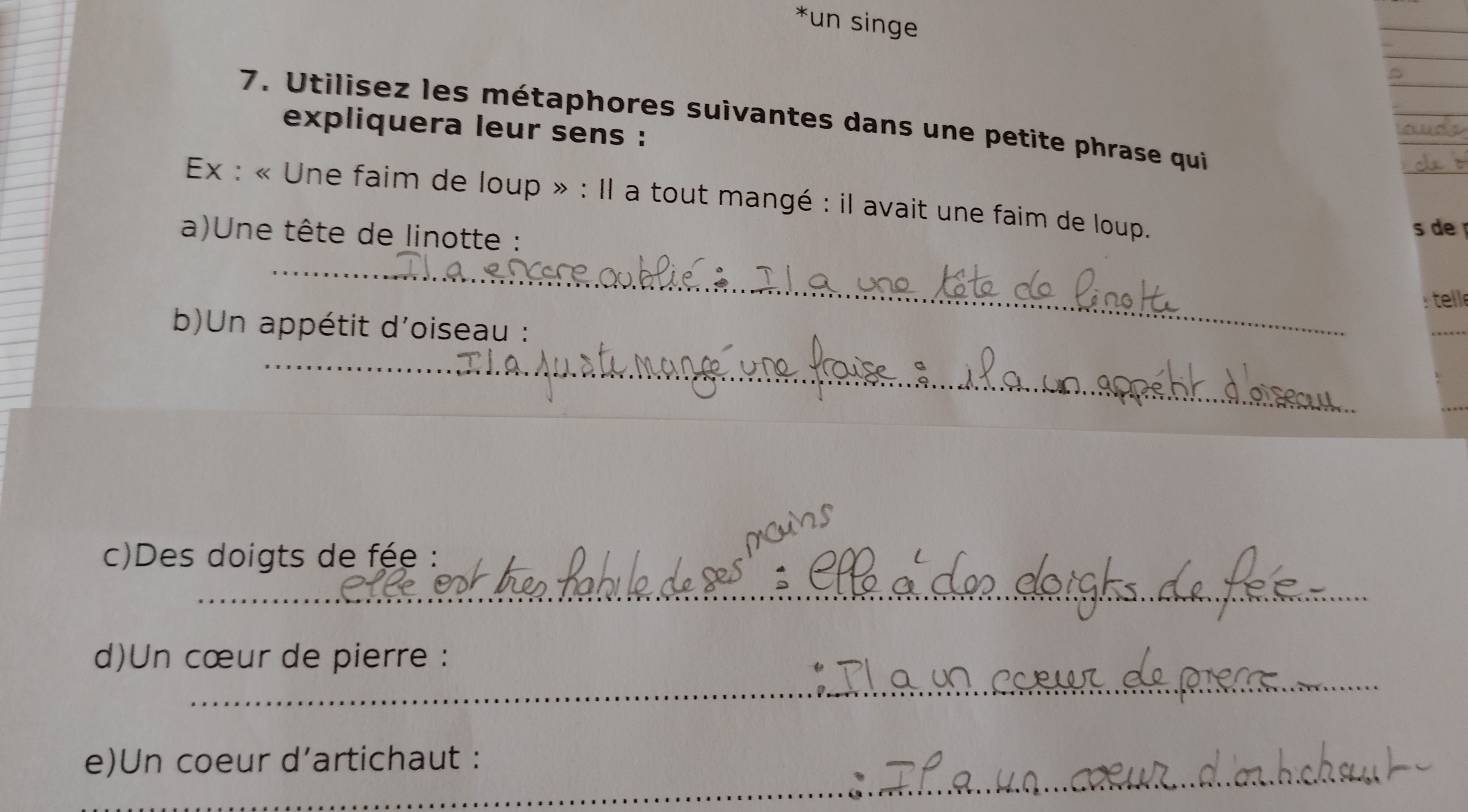 *un singe
7. Utilisez les métaphores suivantes dans une petite phrase qui
expliquera leur sens :
Ex : « Une faim de loup » : Il a tout mangé : il avait une faim de loup.
a)Une tête de linotte :
Il a encore oublié : Il a une tête de linotte
b)Un appétit d'oiseau :
Il a juste mangé une fraise : il a un appétit d'oiseau
mains
c)Des doigts de fée :
elle est très habile de ses : elle a des doigts de fée.
d)Un cœur de pierre :
: Il a un coeur de pierre
e)Un coeur d'artichaut :
: Il a un coeur d'artichaut
s de
: telle